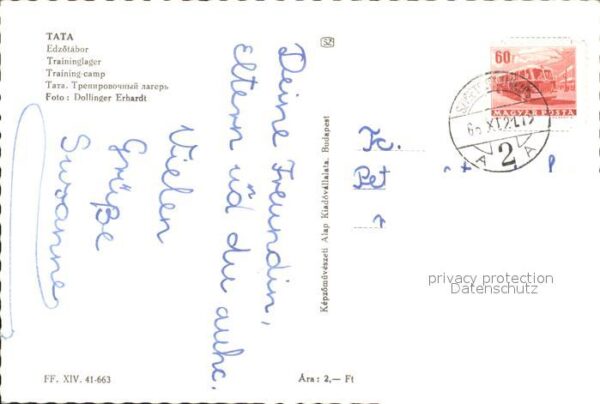 TATA
Edzőtábor
Traininglager
Training-camp
Тата. Тренировочный лагерь
Foto : Dollinger Erhardt
Deine Freundin,
eltern ūd du auhc.
Vielen
Grüße
Susanne
Képzőművészeti Alap Kiadóvállalata, Budapest
60f
MAGYAR POSTA
2
A A
Pet
privacy protection
Datenschutz
FF. XIV. 41-663
Ára : 2,— Ft